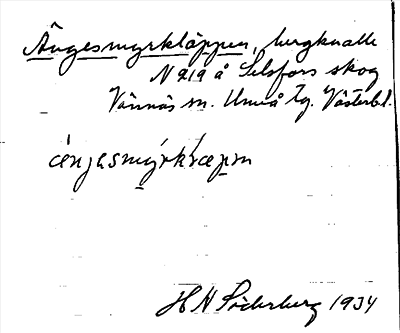 Ängesmyrkläppen, bergknalle
N 219 å Selsfors skog
Vännäs sn. Umeå tg. Västerbl.
ængesmýrklæpm
H N Söderberg 1934